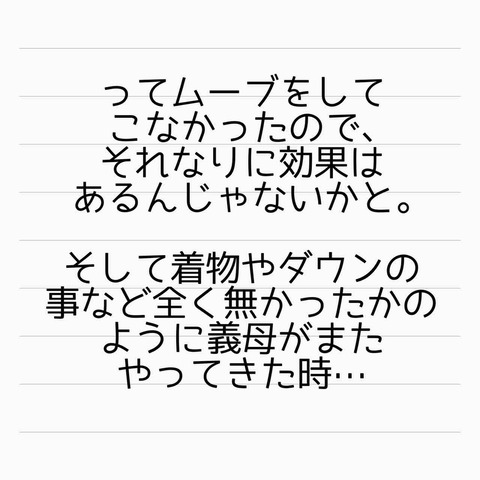 ってムーブをして
こなかったので、
それなりに効果は
あるんじゃないかと。
そして着物やダウンの
事など全く無かったかの
ように義母がまた
やってきた時…